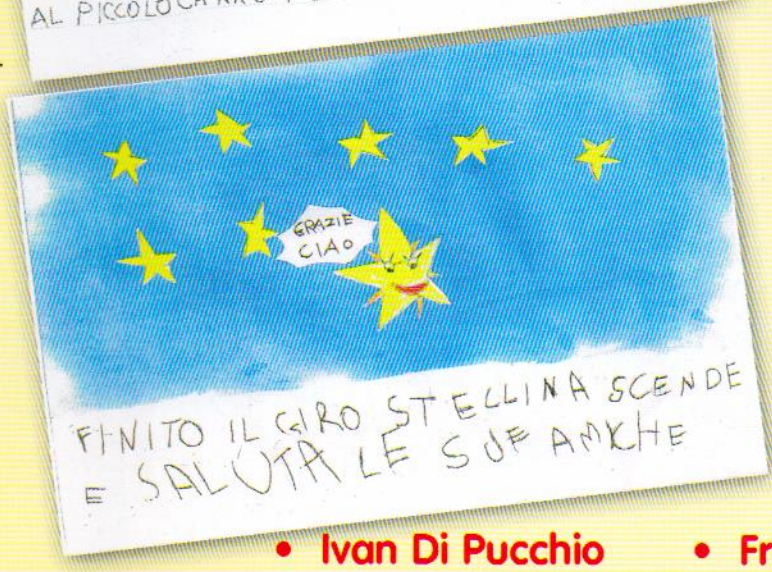 AL PICCOLO
GRAZIE
CIAO
FINITO IL GIRO STELLINA SCENDE
E SALUTA LE SUE AMICHE
• Ivan Di Pucchio • Fr